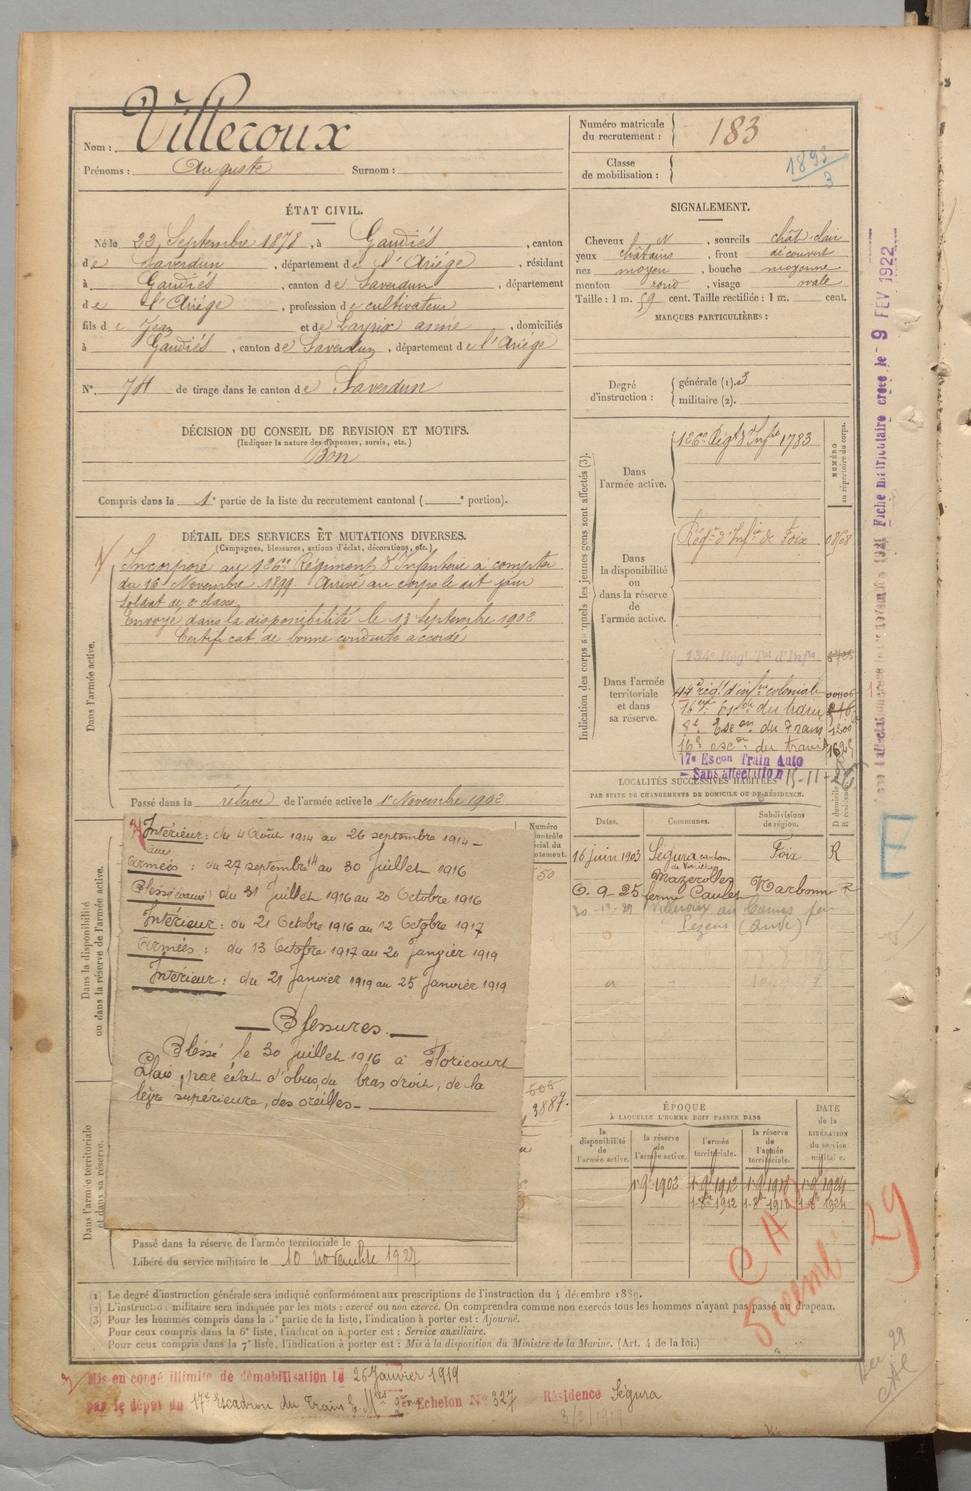 Nom : Villeroux
Prénoms : Auguste Surnom :
Numéro matricule du recrutement : 183
Classe de mobilisation : 1895/3
ÉTAT CIVIL.
Né le 23 Septembre 1878, à Gaudiés, canton
de Saverdun, département de l'Ariége, résidant
à Gaudiés, canton de Saverdun, département
de l'Ariége, profession de cultivateur
fils de Jean et de Layrix asmé, domiciliés
à Gaudiés, canton de Saverdun, département de l'Ariége
N° 74 de tirage dans le canton de Saverdun
SIGNALEMENT.
Cheveux N, sourcils chât-clair
yeux châtains, front découvert
nez moyen, bouche moyenne
menton rond, visage ovale
Taille : 1 m. 59 cent. Taille rectifiée : 1 m. cent.
MARQUES PARTICULIÈRES :
Degré d'instruction : générale (1). 3
militaire (2).
DÉCISION DU CONSEIL DE REVISION ET MOTIFS.
(Indiquer la nature des dispenses, sursis, etc.)
Bon
Compris dans la 1e partie de la liste du recrutement cantonal ( e portion).
DÉTAIL DES SERVICES ET MUTATIONS DIVERSES.
(Campagnes, blessures, actions d'éclat, décorations, etc.)
Dans l'armée active.
Incorporé au 126e Régiment d'Infanterie à compter
du 16 Novembre 1899. Arrivé au corps le dit jour
Soldat de 2e classe
Envoyé dans la disponibilité le 13 Septembre 1902
Certificat de bonne conduite accordé
Passé dans la réserve de l'armée active le 1er Novembre 1902
Indication des corps auxquels les jeunes gens sont affectés (3).
NUMÉRO au répertoire du corps.
Dans l'armée active. 126e Régt d'Infie 1783
Dans la disponibilité ou dans la réserve de l'armée active. Régt d'Infie de Foix 0868
Dans l'armée territoriale et dans sa réserve.
134e Régt Tal d'Infie
44e régt d'infie coloniale
16e Escon du train
8e Escon du Train 1200
16e escon du train 1625
17e Escon Train Auto
Sans affectation 15-11-26
LOCALITÉS SUCCESSIVES HABITÉES
PAR SUITE DE CHANGEMENTS DE DOMICILE OU DE RÉSIDENCE.
Dates. Communes. Subdivisions de région. D domicile R résidence
16 juin 1903 Ségura canton de Varilhes Foix R
6.9.25 Mazerolles ferme Caulet Narbonne R
Villeroux au
Pezens (Aude)
Dans la disponibilité ou dans la réserve de l'armée active.
Intérieur : du 4 Août 1914 au 26 septembre 1914
aux
Armées : du 27 septembre 14 au 30 Juillet 1916
Blessé évacué : du 31 Juillet 1916 au 20 Octobre 1916
Intérieur : du 21 Octobre 1916 au 12 Octobre 1917
Armées : du 13 Octobre 1917 au 20 janvier 1919
Intérieur : du 21 Janvier 1919 au 25 Janvier 1919
Blessures.
Blessé le 30 juillet 1916 à Floricourt
Plaie par éclat d'obus, du bras droit, de la
lèvre supérieure, des oreilles
505
3887.
ÉPOQUE
À LAQUELLE L'HOMME DOIT PASSER DANS
la disponibilité de l'armée active. la réserve de l'armée active. l'armée territoriale. la réserve de l'armée territoriale.
DATE de la LIBÉRATION du service militaire.
1. 9bre 1902 1. 9bre 1912 1. 9bre 1918 1. 9bre 1924
1. 8bre 1912 1. 8bre 1918 1. 8bre 1924
Dans l'armée territoriale et dans sa réserve.
Passé dans la réserve de l'armée territoriale le
Libéré du service militaire le 10 novembre 1927
(1) Le degré d'instruction générale sera indiqué conformément aux prescriptions de l'instruction du 4 décembre 1889.
(2) L'instruction militaire sera indiquée par les mots : exercé ou non exercé. On comprendra comme non exercés tous les hommes n'ayant pas passé au drapeau.
(3) Pour les hommes compris dans la 5e partie de la liste, l'indication à porter est : Ajourné.
Pour ceux compris dans la 6e liste, l'indication à porter est : Service auxiliaire.
Pour ceux compris dans la 7e liste, l'indication à porter est : Mis à la disposition du Ministre de la Marine. (Art. 4 de la loi.)
Mis en congé illimité de démobilisation le 26 Janvier 1919
par le dépôt du 17e Escadron du Train Echelon N° 327 Résidence Ségura
Fiche matriculaire créée le 9 FEV 1922
29